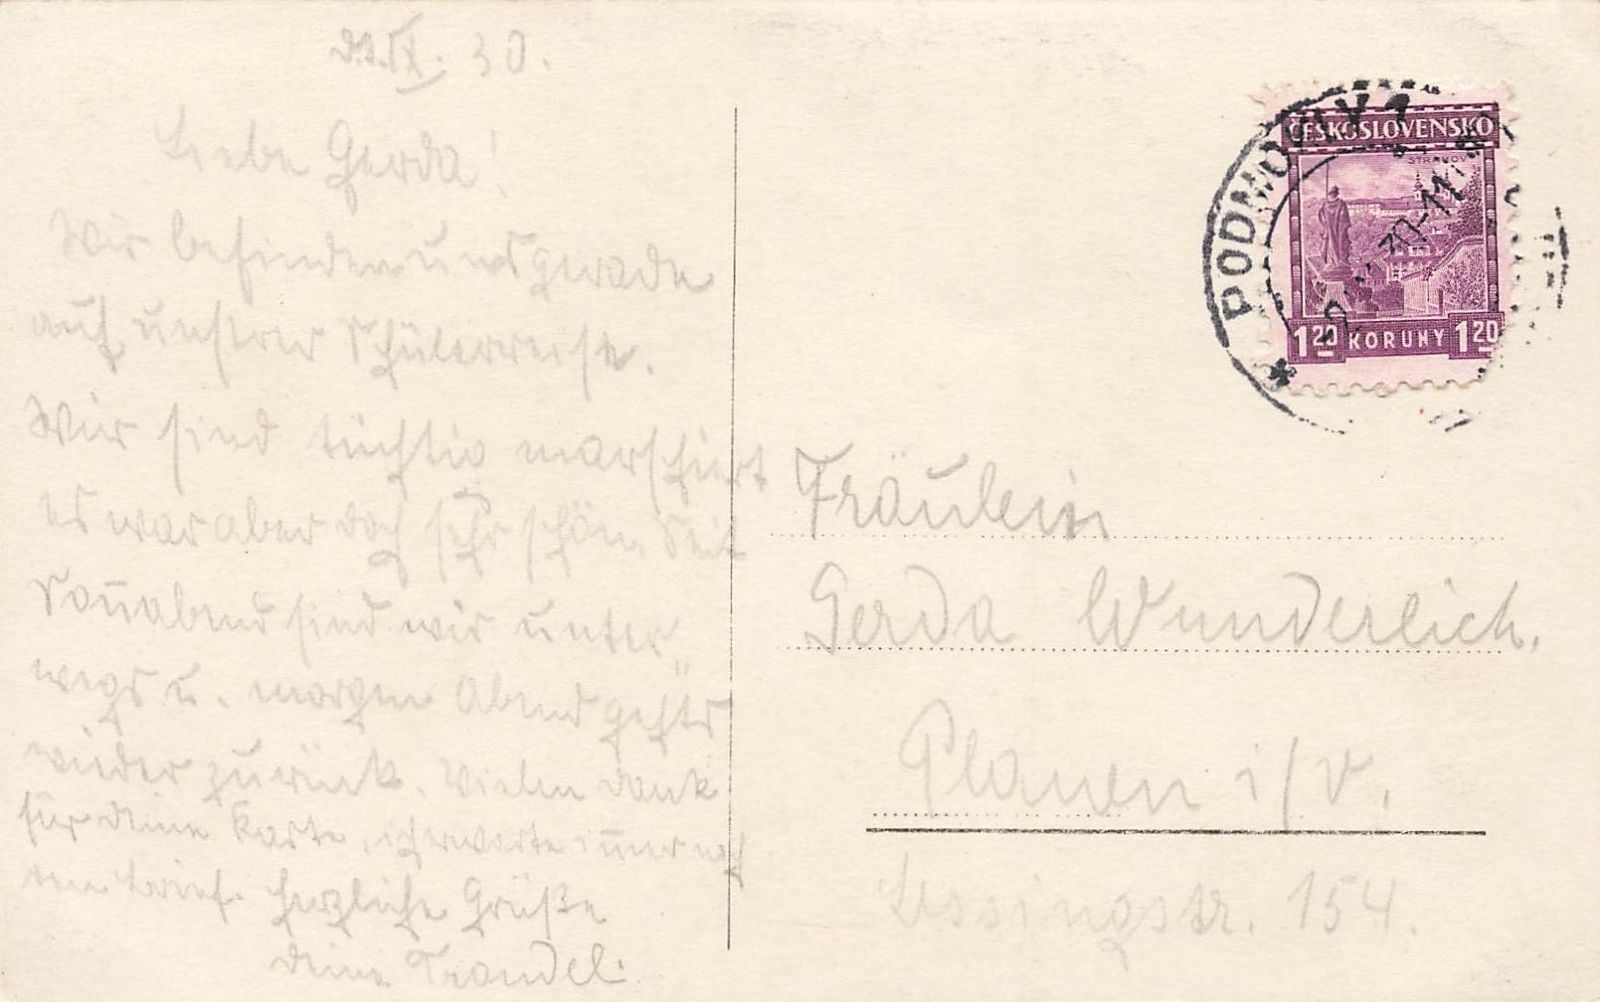 IX. 30.
Liebe Gerda!
Wir befinden uns gerade
auf unsrer Schülerreise.
Wir sind tüchtig marschiert
es war aber doch sehr schön. Seit
Sonnabend sind wir unter
wegs u. morgen Abend gehts
wieder zurück. Vielen Dank
für deine Karte, ich erwarte immer noch
den Brief. Herzliche Grüße
deine Traudel.
ČESKOSLOVENSKO
STRAHOV
1.20 KORUNY 1.20
PODMOKLY 1
Fräulein
Gerda Wunderlich.
Plauen i/V.
Lessingstr. 154.